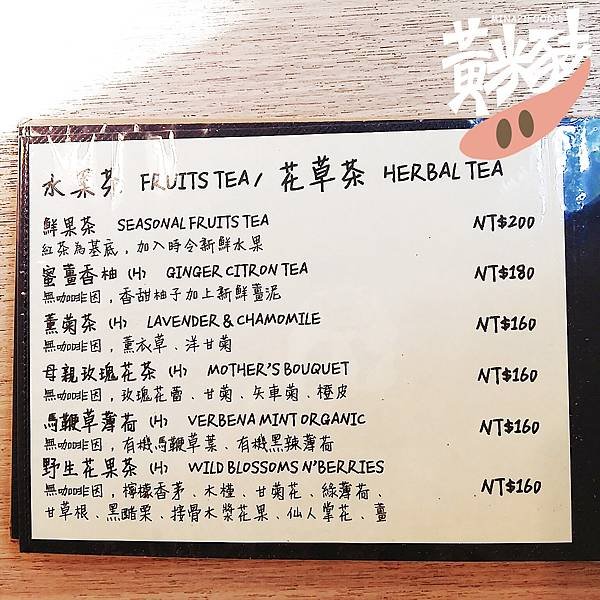 黃米豬
水菓茶 FRUITS TEA / 花草茶 HERBAL TEA
鮮果茶 SEASONAL FRUITS TEA NT$200
紅茶為基底，加入時令新鮮水果
蜜薑香柚 (H) GINGER CITRON TEA NT$180
無咖啡因，香甜柚子加上新鮮薑泥
薰菊茶 (H) LAVENDER & CHAMOMILE NT$160
無咖啡因，薰衣草、洋甘菊
母親玫瑰花茶 (H) MOTHER'S BOUQUET NT$160
無咖啡因，玫瑰花蕾、甘菊、矢車菊、橙皮
馬鞭草薄荷 (H) VERBENA MINT ORGANIC NT$160
無咖啡因，有機馬鞭草葉、有機黑辣薄荷
野生花果茶 (H) WILD BLOSSOMS N'BERRIES NT$160
無咖啡因，檸檬香茅、木槿、甘菊花、綠薄荷、
甘草根、黑醋栗、接骨木漿花果、仙人掌花、薑